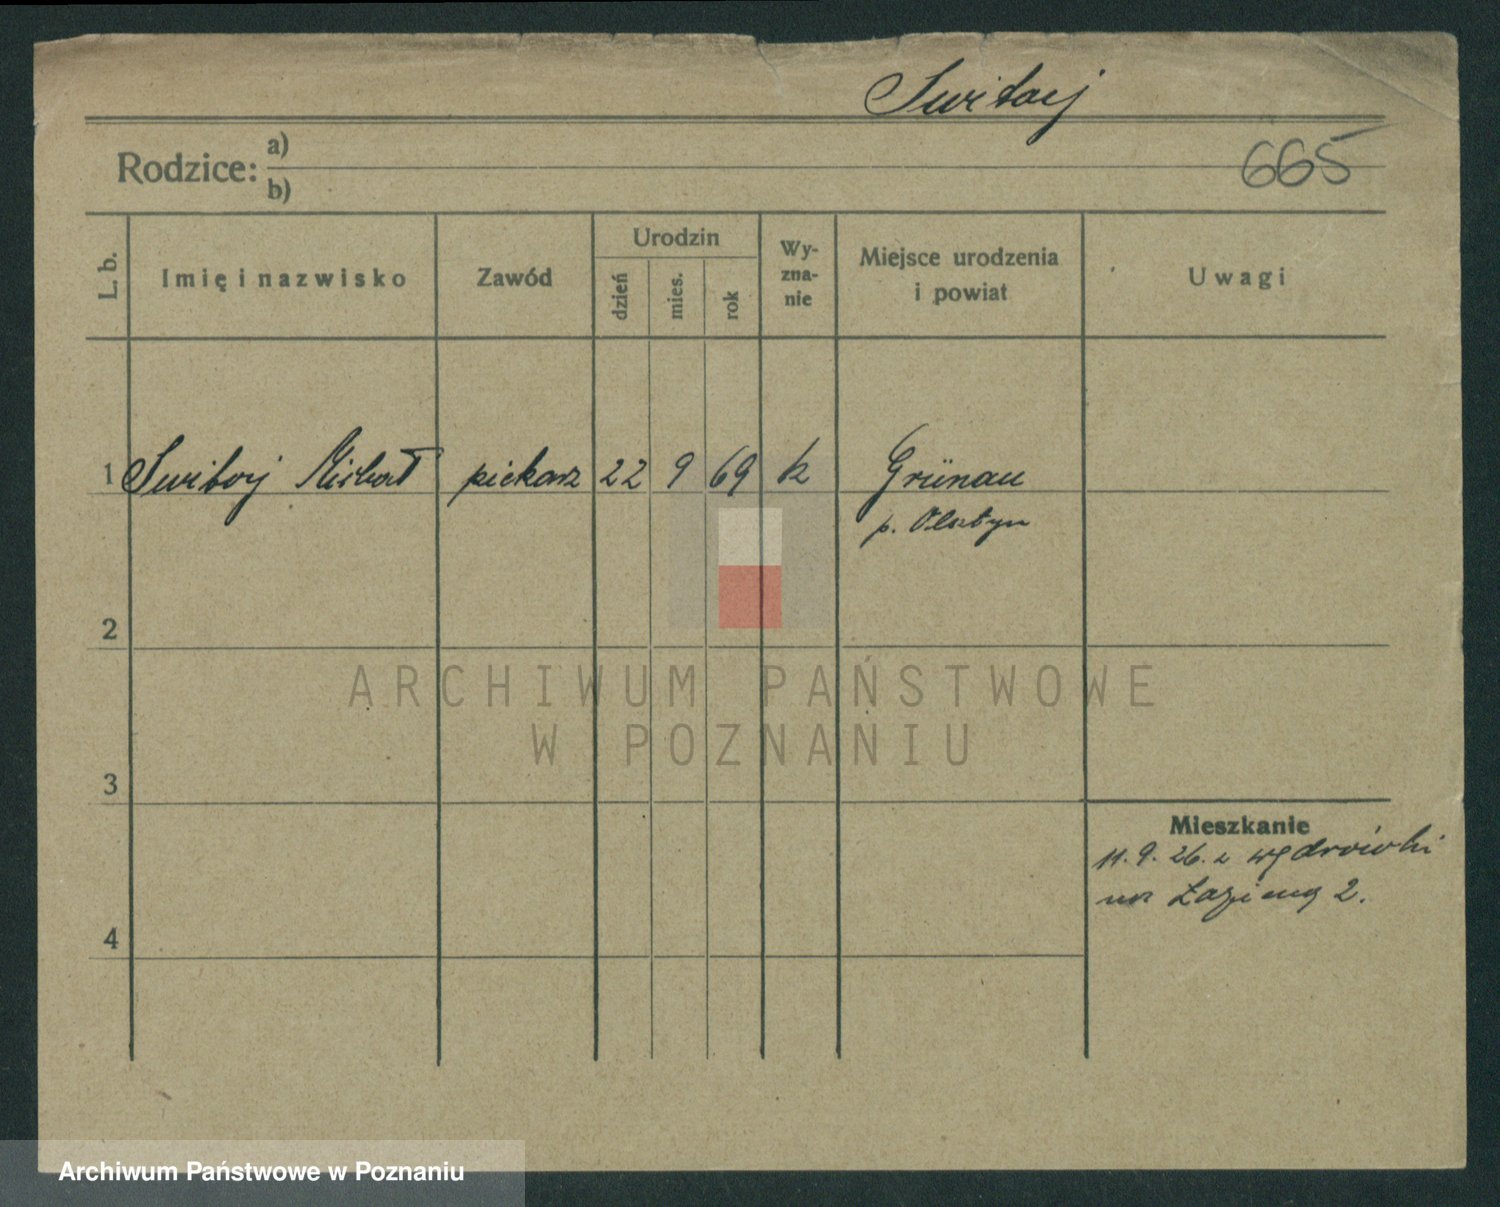 Switaj
665
Rodzice: a)
b)
L. b.
Imię i nazwisko
Zawód
Urodzin
dzień
mies.
rok
Wy-
zna-
nie
Miejsce urodzenia
i powiat
Uwagi
1 Switaj Michał piekarz 22 9 69 k Grünau
p. Olsztyn
2
3
4
Mieszkanie
11.9.26. z wędrówki
na Łazienną 2.
ARCHIWUM PAŃSTWOWE
W POZNANIU
Archiwum Państwowe w Poznaniu